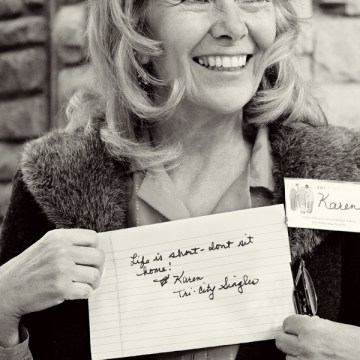 Life is short - dont sit
home!
Karen
Tri-City Singles
Karen